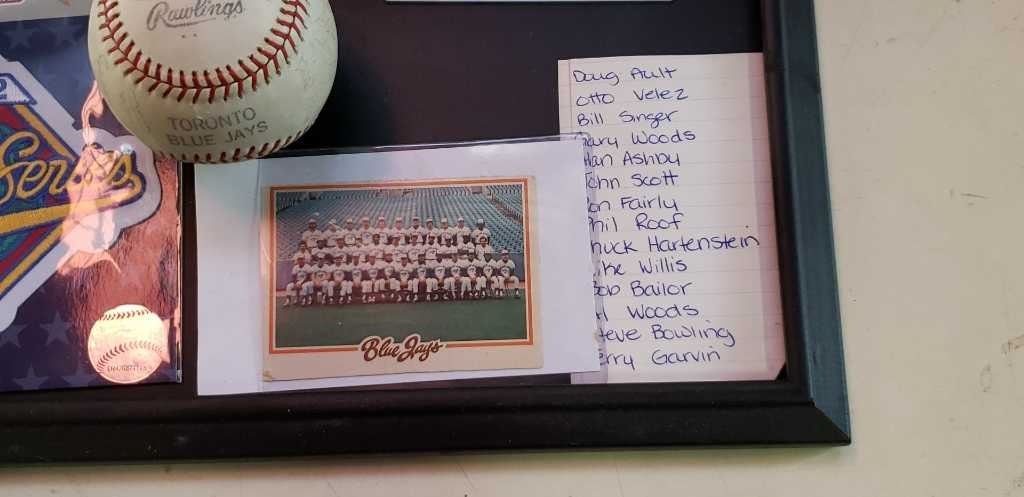 Rawlings
TORONTO
BLUE JAYS
Series
Blue Jays
Doug Ault
Otto Velez
Bill Singer
Gary Woods
Alan Ashby
John Scott
Ron Fairly
Phil Roof
huck Hartenstein
ike Willis
Bob Bailor
Al Woods
teve Bowling
erry Garvin